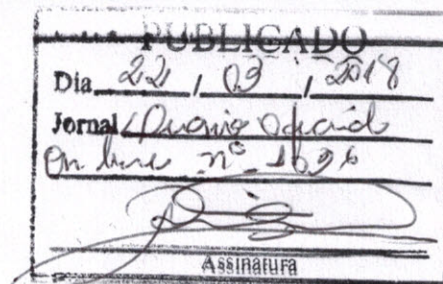 PUBLICADO
Dia 22 / 03 / 2018
Jornal Diario Oficial
On line nº 1696
Assinatura